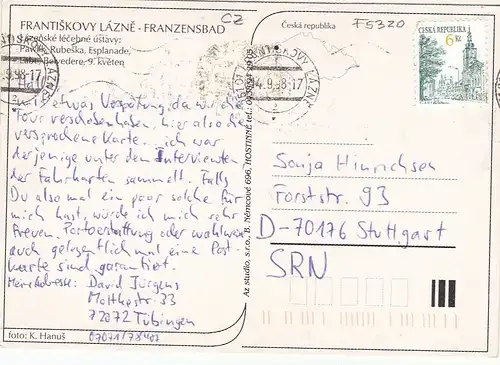 FRANTIŠKOVY LÁZNĚ - FRANZENSBAD
CZ
Česká republika
F5320
léčebné ústavy:
Pavilon Rubeška, Esplanade,
Labe, Belvedere, 9. květen
ČESKÁ REPUBLIKA
6 Kč
FRANTIŠKOVY LÁZNĚ
14.9.98-17
mit etwas Verspätung, da wir die
Tour verschoben haben, hier also die
versprochene Karte. ich war
derjenige unter den Interviewten
der Fahrkarten sammelt. Falls
Du also mal ein paar solche für
mich hast, würde ich mich sehr
freuen. Portoerstattung oder wahlweise
auch gelegentlich mal eine Post-
karte sind garantiert.
Meine Adresse: David Jürgens
Moltkestr. 33
72072 Tübingen
foto: K. Hanuš
Az studio, s.r.o., B. Němcové 696, HOSTINNÉ tel.:
Sonja Hinrichsen
Forststr. 93
D-70176 Stuttgart
SRN